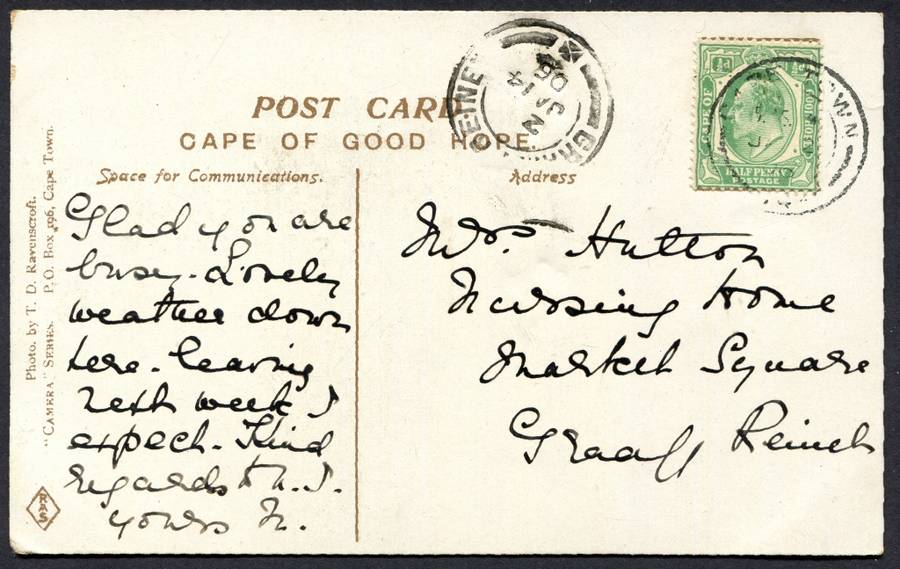 POST CARD
CAPE OF GOOD HOPE.
Space for Communications.
Address
Glad you are
busy. Lovely
weather down
here. leaving
next week I
expect. Kind
regards to
yours
Mrs. Hutton
Nursing Home
Market Square
Graaff Reinet
Photo. by T. D. Ravenscroft.
"CAMERA" SERIES. P.O. Box 196, Cape Town.
RAS
CAPE OF GOOD HOPE
HALF PENNY
POSTAGE
JA 14
06
TOWN